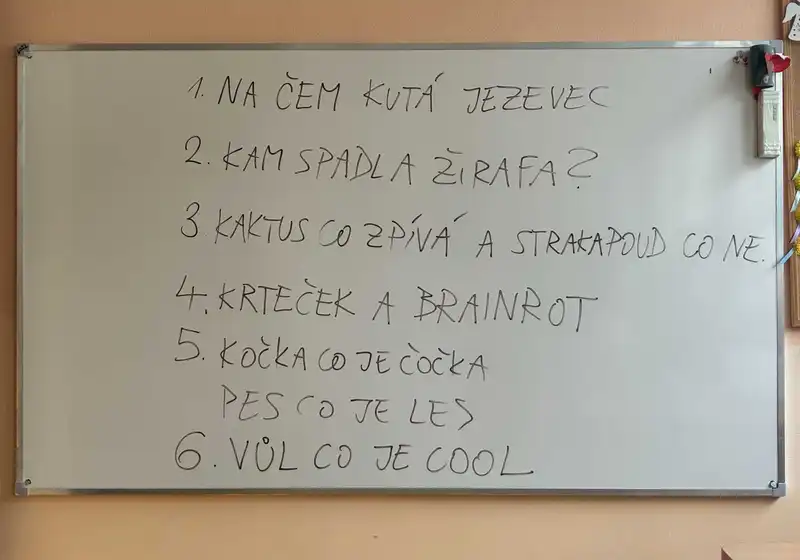 1. NA ČEM KUTÁ JEZEVEC
2. KAM SPADLA ŽIRAFA?
3 KAKTUS CO ZPÍVÁ A STRAKAPOUD CO NE.
4. KRTEČEK A BRAINROT
5. KOČKA CO JE ČOČKA
PES CO JE LES
6. VŮL CO JE COOL